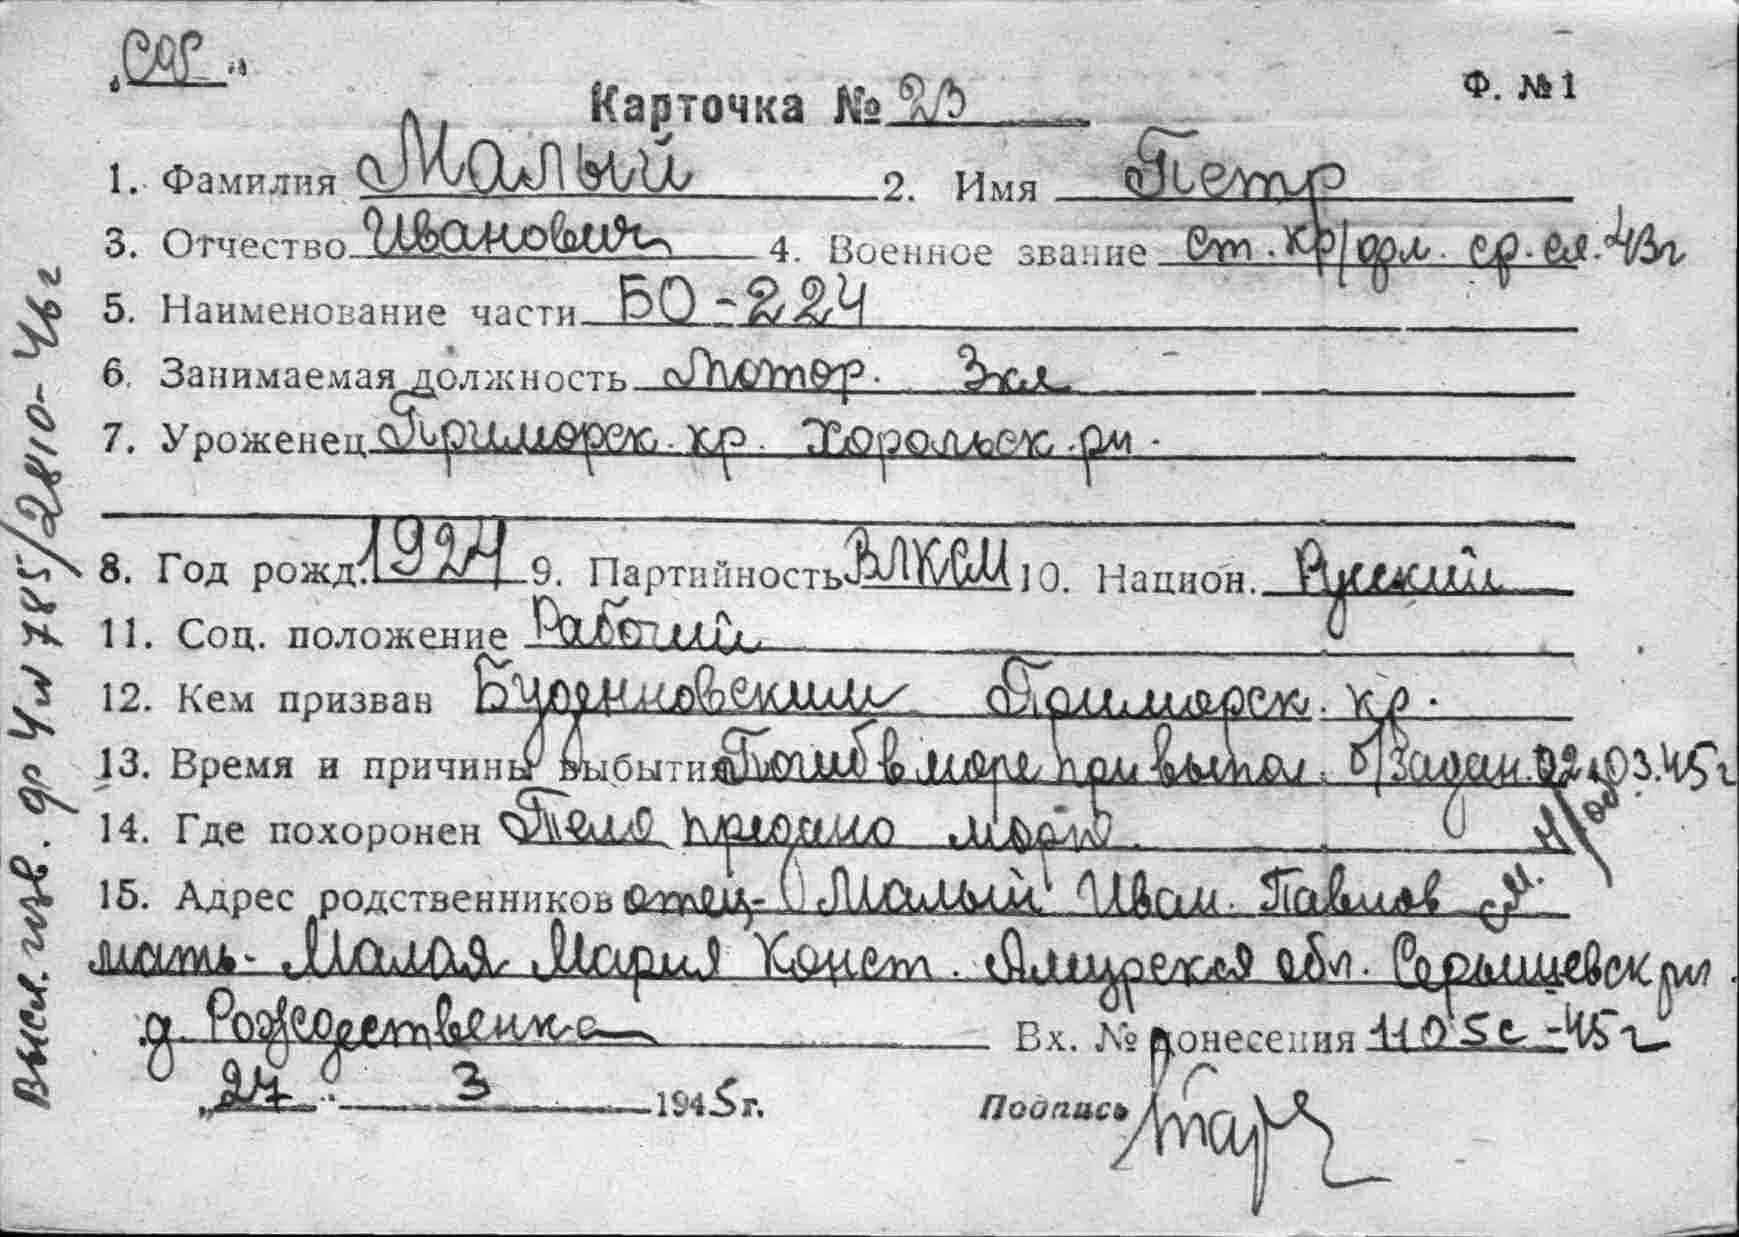 „СФ"
Карточка № 23 Ф. №1
1. Фамилия Малый 2. Имя Петр
3. Отчество Иванович 4. Военное звание ст. кр/фл. ср. сл. 43г
5. Наименование части БО-224
6. Занимаемая должность Мотор. Зкл
7. Уроженец Приморск. кр. Хорольск. рн.
8. Год рожд. 1924 9. Партийность ВЛКСМ 10. Национ. Русский
11. Соц. положение Рабочий
12. Кем призван Буденновским Приморск. кр.
13. Время и причины выбытия Погиб в море при выпол. б/задан. 02.03.45г
14. Где похоронен Тело предано морю
15. Адрес родственников отец- Малый Иван. Павлов см. н/об
мать- Малая Мария Конст. Амурская обл. Серышевск рн.
д. Рождественка Вх. № донесения 1105с-45г
„27" 3 1945г. Подпись
Высл. изв. ф 4 № 785/2810-46г